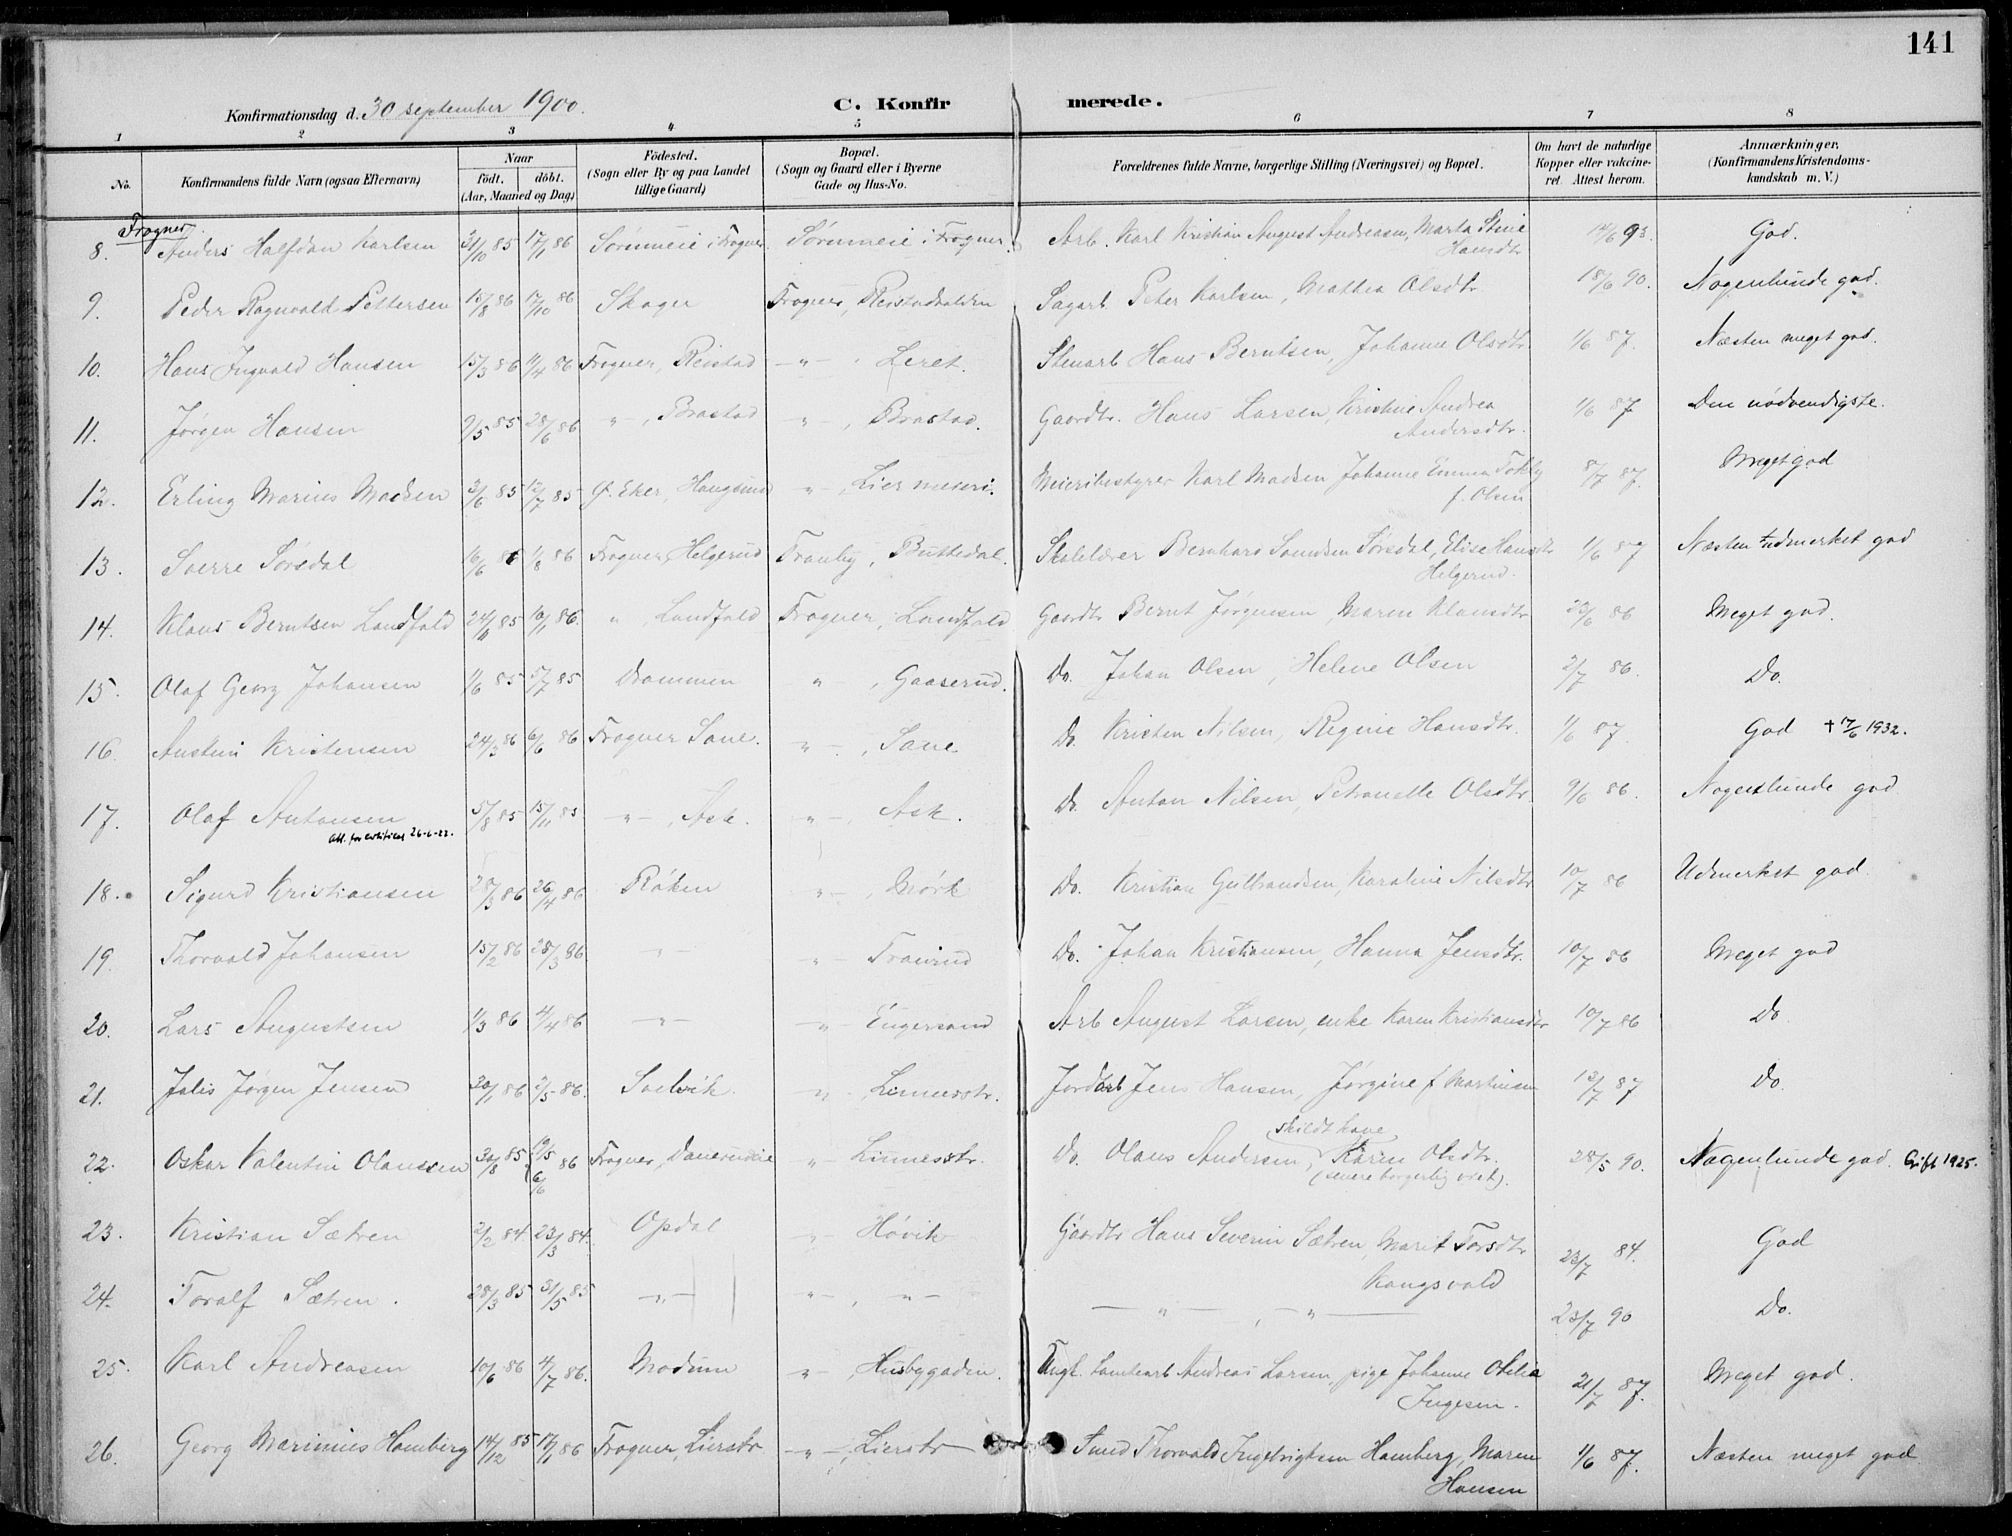 141
Konfirmationsdag d. 30 september 1900.
C. Konfirmerede.
1 2 3 4 5 6 7 8
No.
Konfirmandens fulde Navn (ogsaa Efternavn)
Naar
født. døbt.
(Aar, Maaned og Dag)
Fødested.
(Sogn eller By og paa Landet
tillige Gaard)
Bopæl.
(Sogn og Gaard eller i Byerne
Gade og Hus-No.
Forældrenes fulde Navne, borgerlige Stilling (Næringsvei) og Bopæl.
Om havt de naturlige
Kopper eller vakcine-
ret. Attest herom.
Anmærkninger.
(Konfirmandens Kristendoms-
kundskab m. V.)
Frogner.
8. Anders Halfdan Karlsen 31/10 85 17/1 86 Sørumeie i Frogner Sørumeie i Frogner. Arb. Karl Kristian August Andreasen, Marta Stine 14/6 93 God.
Hansdtr
9. Peder Ragnvald Pettersen 15/8 86 17/10 86 Skoger Frogner, Reistadbakken Sagarb. Peter Karlsen, Mathea Olsdtr 18/6 90. Nogenlunde god.
10. Hans Ingvald Hansen 15/3 86 11/4 86 Frogner, Reistad -"- Leret. Stenarb Hans Berntsen, Johanne Olsdtr 1/6 87. Næsten meget god.
11. Jørgen Hansen 9/5 85 28/6 86 -"-, Brastad "-, Brastad. Gaardbr. Hans Larsen, Kristine Andrea 1/6 87 Den nødvendigste.
Andersdtr.
12. Erling Marius Madsen 3/6 85 12/7 85 Ø. Eker, Haugsund "-, Lier meieri. Meieribestyrer Karl Madsen Johanne Emma 8/7 87. Meget god
f. Olsen
13. Sverre Sørsdal 16/6 86 1/8 86 Frogner, Helgerud Tranby, Buttedal. Skolelærer Bernhard Sørsdal, Elise Hansdtr 1/6 87 Næsten udmerket god
Helgerud.
14. Klaus Berntsen Landfald 24/11 85 10/1 86. ", Landfald Frogner, Landfald Gaardbr Bernt Jørgensen, Maren Klausdtr 23/6 86 Meget god.
15. Olaf Georg Johansen 1/6 85 5/7 85 Drammen "-, Gaaserud. Do. Johan Olsen, Helene Olsen 2/7 86. Do.
16. Austin Kristensen 24/3 86 6/6 86 Frogner Sane. "-, Sane Do. Kristen Nilsen, Regine Hansdtr. 1/6 87. God † 17/6 1932.
17. Olaf Antonsen 5/8 85 15/11 85 -"-, Ask. "-, Ask. Do. Anton Nilsen, Petronelle Olsdtr. 9/6 86. Nogenlunde god
26-6-22.
18. Sigurd Kristiansen 28/3 86 26/4 86 Røken "-, Mørk Do. Kristian Gulbrandsen, Karoline Nilsdtr 10/7 86 Udmerket god.
19. Thorvald Johansen 15/2 86 28/3 86 -"- "- Tranrud Do. Johan Kristiansen, Hanna Jensdtr. 10/7 86 Meget god
20. Lars Augustsen 1/3 86 4/4 86 -"- "- Engersand Arb August Larsen, enke Karen Kristiansdtr 10/7 86 Do
21. Jølis Jørgen Jensen 30/1 86 2/5 86. Svelvik. "-, Linnesstr. Jordarb Jens Hansen, Jørgine f Martinsen 13/7 87 Do.
skildt kone
22. Oskar Valentin Olaussen 30/8 85 Frogner, 6/6 86 "- Linnesstr. Do. Olaus Andersen, Karen Olsdtr. 28/5 90. Nogenlunde god. Gift 1925.
(senere borgerlig viet).
23. Kristian Sætren 2/2 84 23/3 84. Opdal "- Høvik Gaardbr Hans Severin Sætren, Marit Torsdtr 23/7 84. God
Kongsvold
24. Toralf Sætren. 28/3 85 31/5 85 -"- "-, -"- -"-, -"- 23/7 90 Do.
25. Karl Andreasen 10/6 86 4/7 86. Modum "-, Husbygaden. Ungk. Andreas Larsen, pige Johanne Otilia 21/7 87. Meget god.
Ingesen.
26. Georg Marinius Hamberg 14/12 85 17/1 86 Frogner, Lierstr -"-, Lierstr Smed Thorvald Ingebrigtsen Hamberg, Maren 1/6 87. Næsten meget god
Hansen